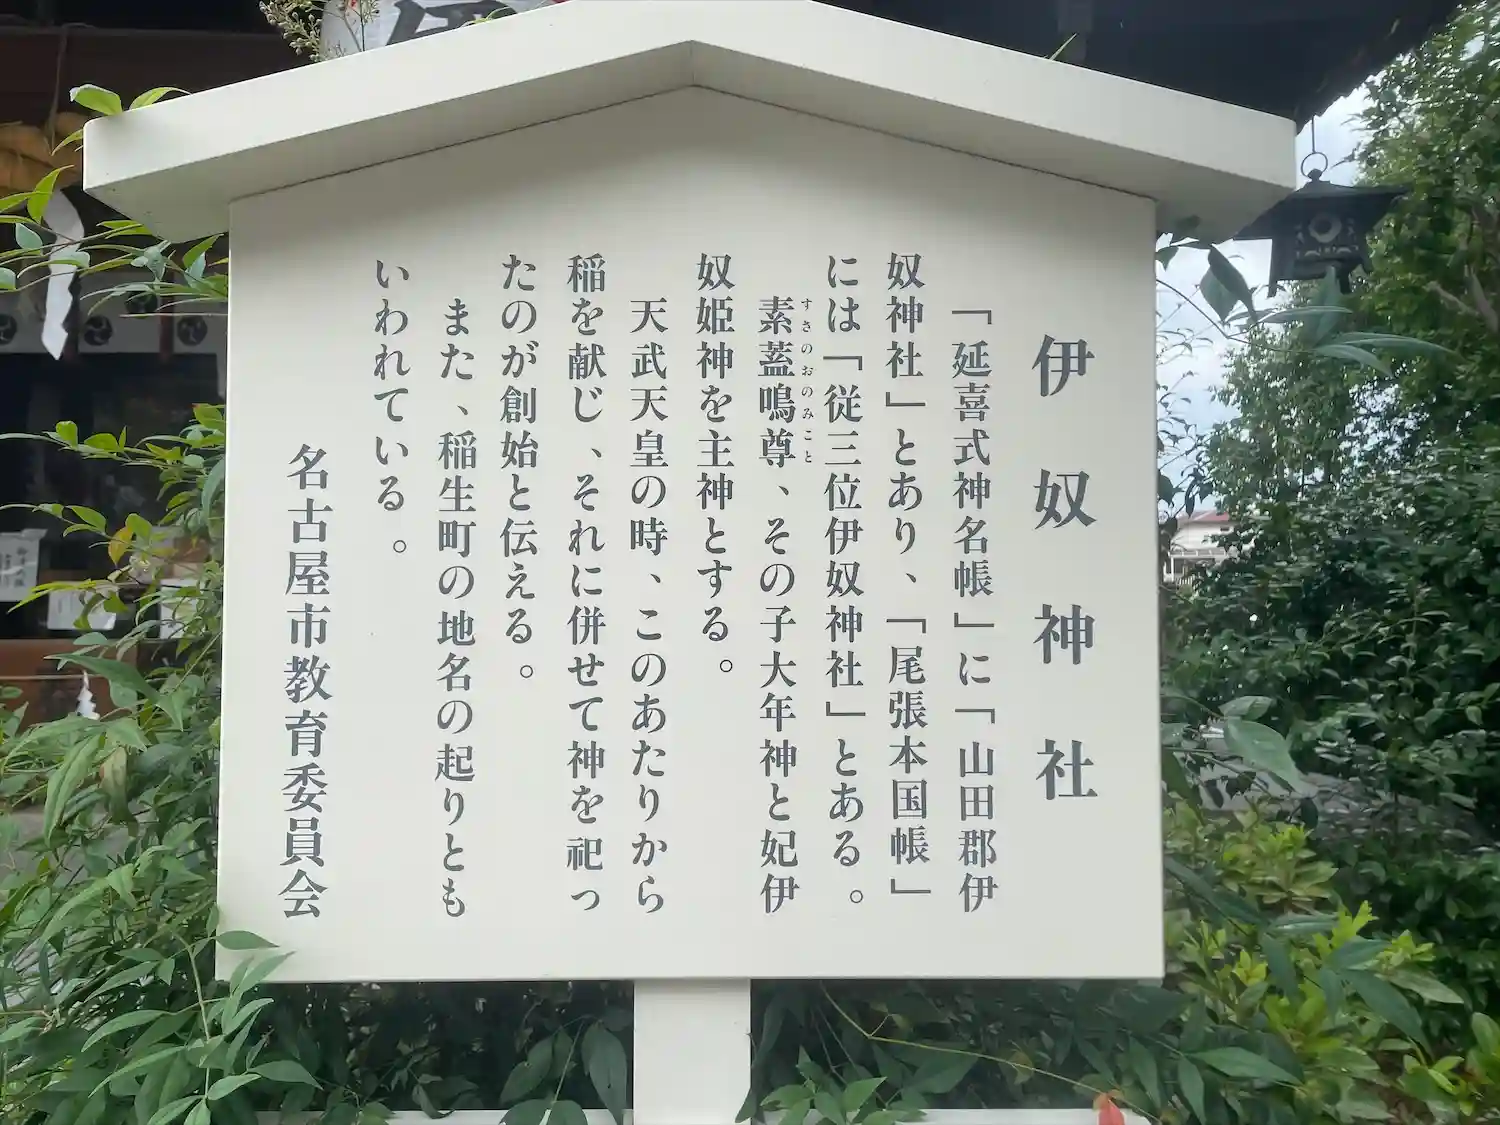 伊奴神社
「延喜式神名帳」に「山田郡伊
奴神社」とあり、「尾張本国帳」
には「従三位伊奴神社」とある。
すさのおのみこと
素蓋嗚尊、その子大年神と妃伊
奴姫神を主神とする。
天武天皇の時、このあたりから
稲を献じ、それに併せて神を祀っ
たのが創始と伝える。
また、稲生町の地名の起りとも
いわれている。
名古屋市教育委員会